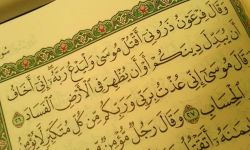 وَقَالَ فِرْعَوْنُ ذَرُونِي أَقْتُلْ مُوسَىٰ وَلْيَدْعُ رَبَّهُ إِنِّي أَخَافُ
أَن يُبَدِّلَ دِينَكُمْ أَوْ أَن يُظْهِرَ فِي ٱلْأَرْضِ ٱلْفَسَادَ ٢٦
وَقَالَ مُوسَىٰ إِنِّي عُذْتُ بِرَبِّي وَرَبِّكُم مِّن كُلِّ مُتَكَبِّرٍ لَّا يُؤْمِنُ
ٱلْحِسَابِ ٢٧ وَقَالَ رَجُلٌ مُّؤْمِنٌ